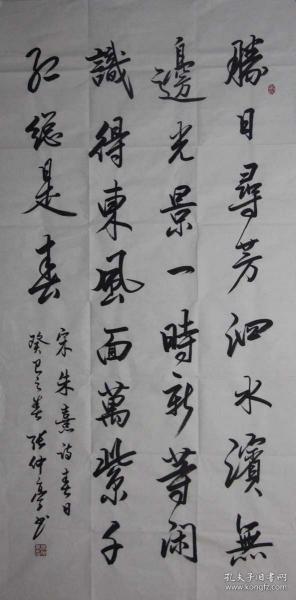 勝日尋芳泗水濱無
邊光景一時新等閑
識得東風面萬紫千
紅總是春
宋朱熹詩春日
癸巳之春張仲亭书
孔夫子旧书网